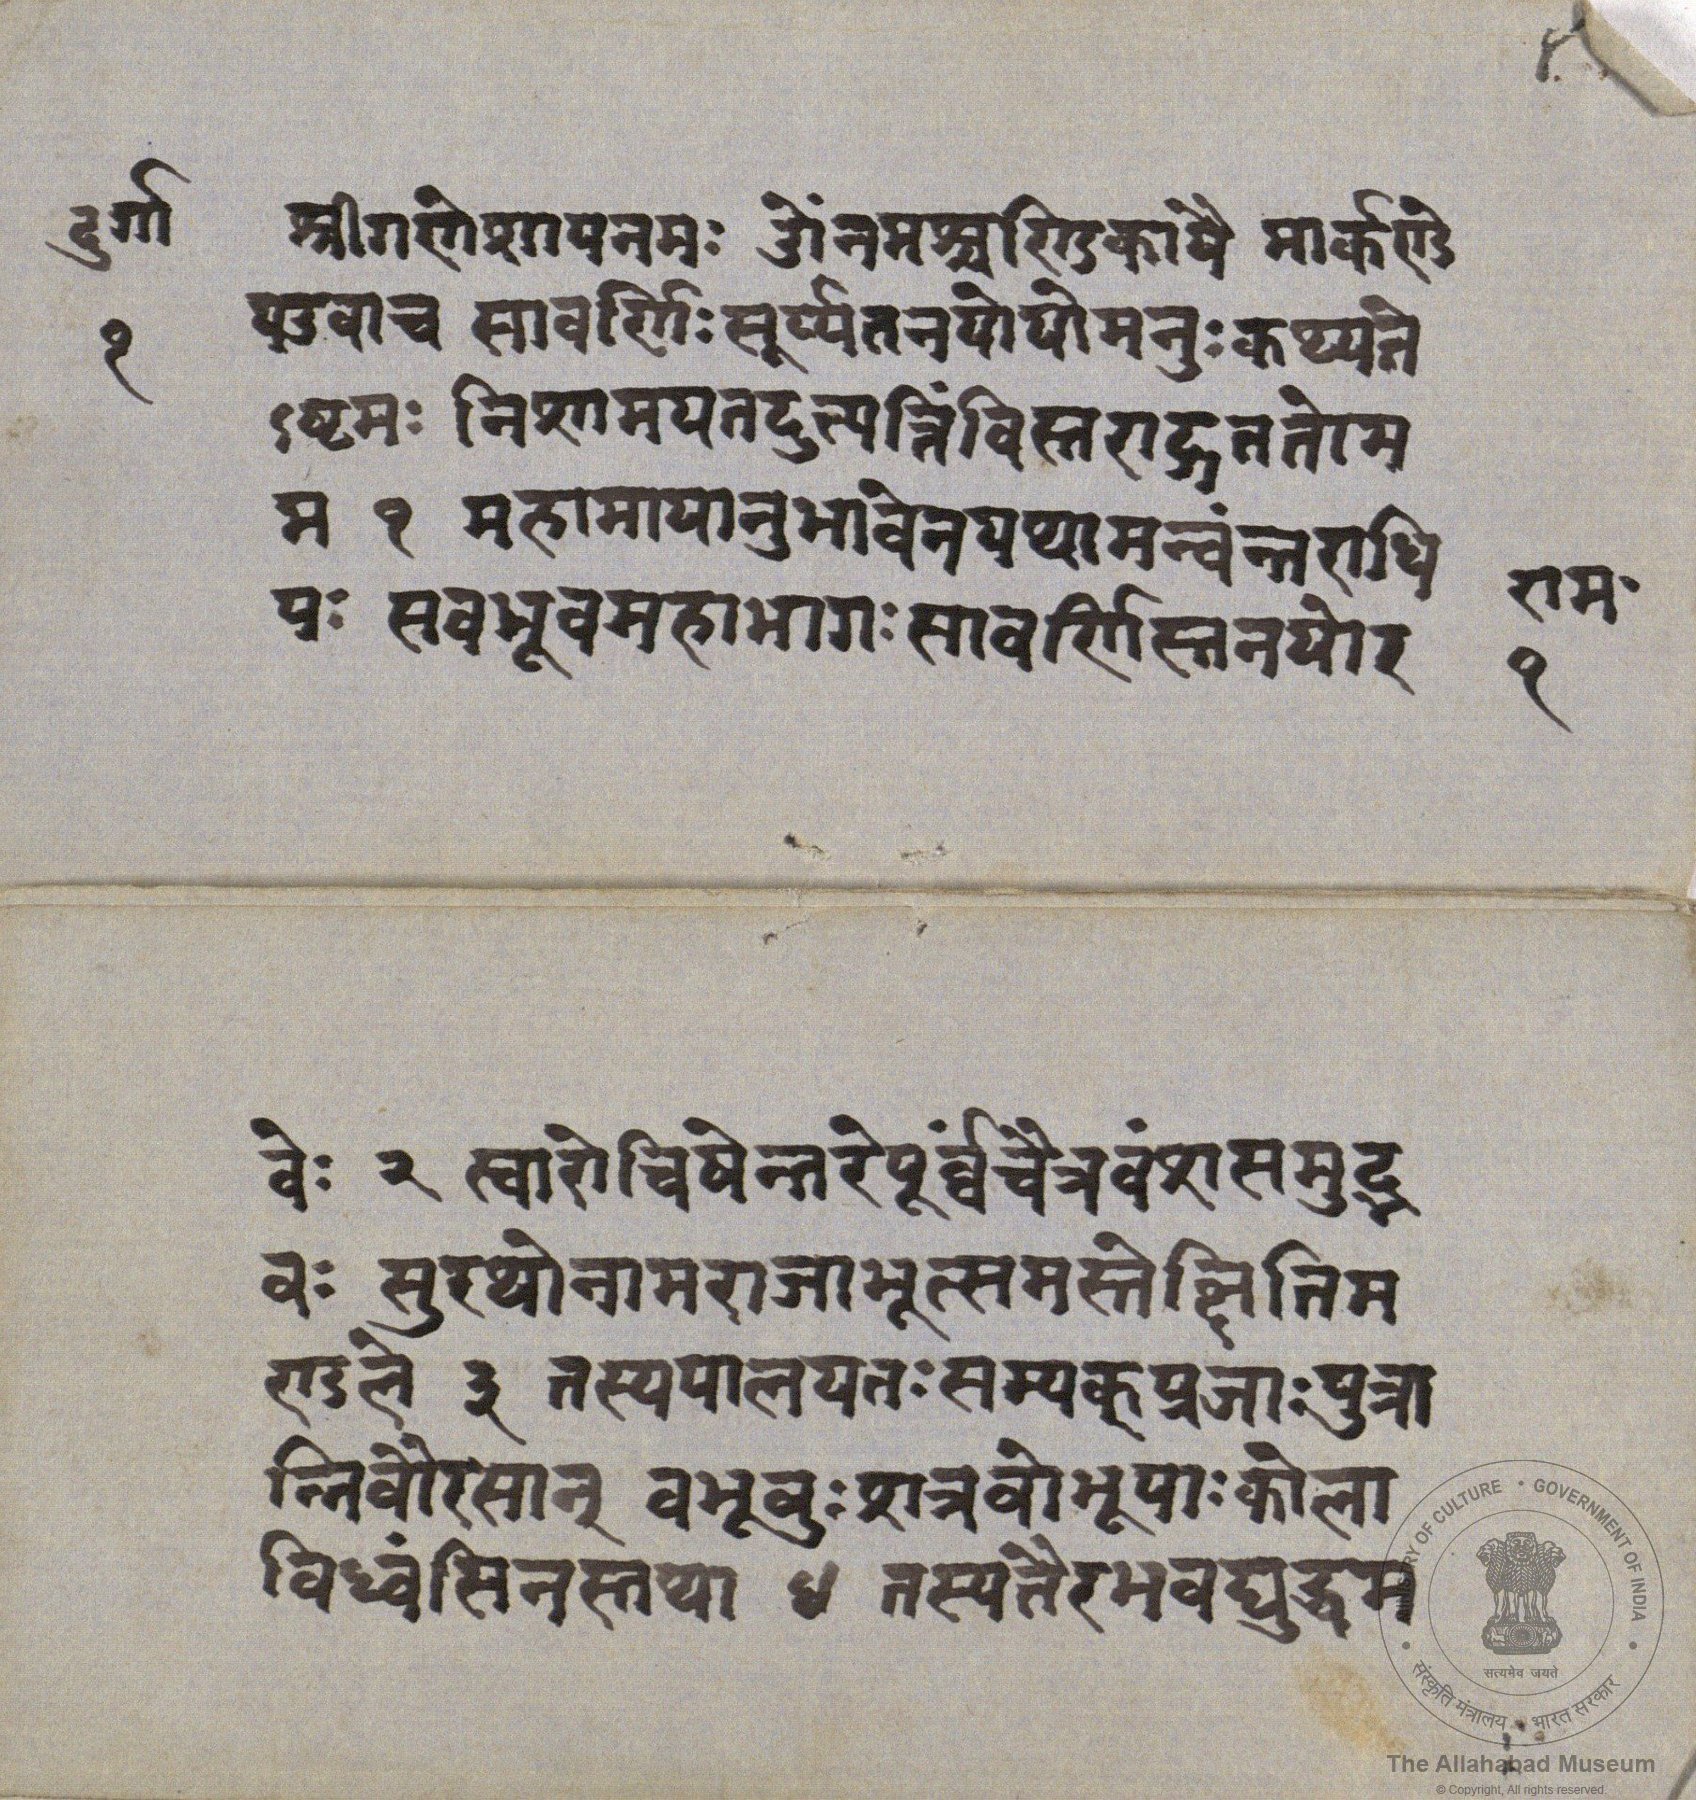 दुर्गा
१
श्रीगणेशायनमः ॐनमश्चण्डिकायै मार्कण्डे
यउवाच सावर्णिः सूर्य्यतनयोयोमनुः कथ्यते
ऽष्टमः निशामयतदुत्पत्तिंविस्तराद्गततोम
म १ महामायानुभावेनयथामन्वंन्तराधि
पः सवभूवमहाभागः सावर्णिस्तनयोर
राम॰
१
वेः २ स्वारोचिषेन्तरेपूर्वंचैत्रवंशसमुद्भ
वः सुरथोनामराजाभूत्समस्तेक्षितिम
ण्डले ३ तस्यपालयतः सम्यक्प्रजाः पुत्रा
निवौरसान् वभूवुः शत्रवोभूपाः कोला
विध्वंसिनस्तथा ४ तस्यतैरभवद्युद्धम
MINISTRY OF CULTURE • GOVERNMENT OF INDIA
सत्यमेव जयते
संस्कृति मंत्रालय • भारत सरकार
The Allahabad Museum
© Copyright, All rights reserved.